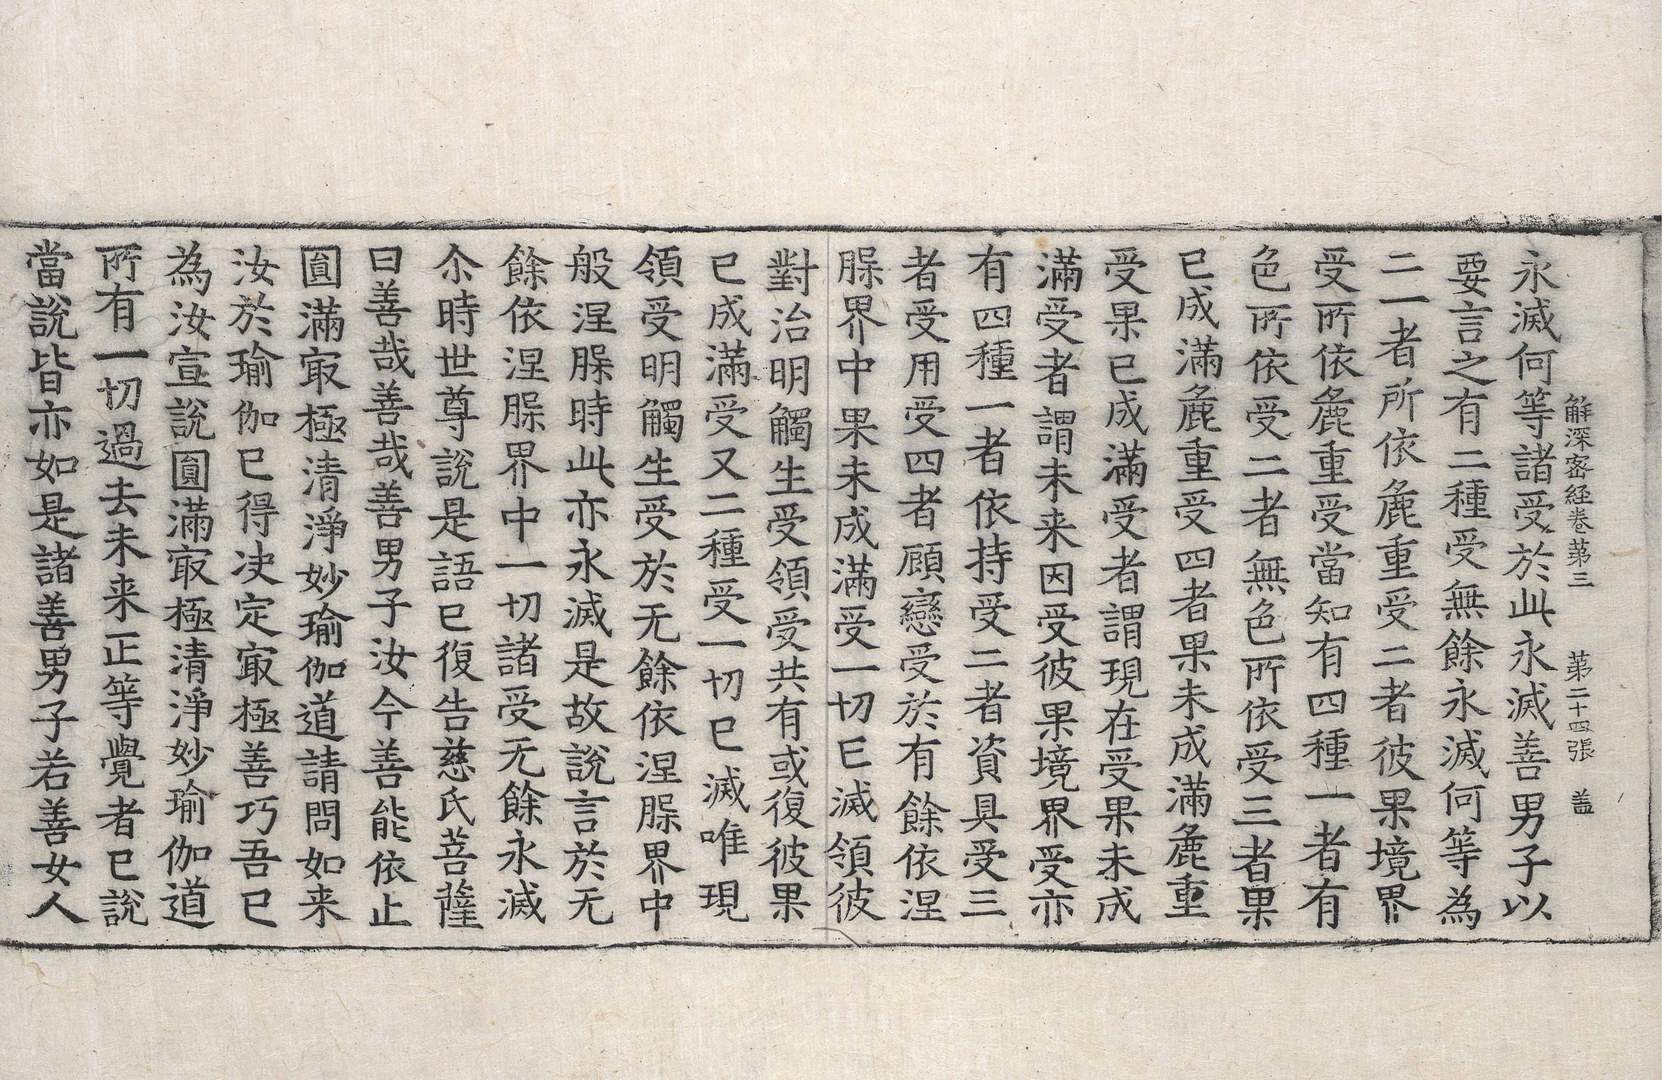 解深密經卷第三 第二十四張 盖
永滅何等諸受於此永滅善男子以
要言之有二種受無餘永滅何等為
二一者所依麁重受二者彼果境界
受所依麁重受當知有四種一者有
色所依受二者無色所依受三者果
已成滿麁重受四者果未成滿麁重
受果已成滿受者謂現在受果未成
滿受者謂未来因受彼果境界受亦
有四種一者依持受二者資具受三
者受用受四者顧戀受於有餘依涅
槃界中果未成滿受一切已滅領彼
對治明觸生受領受共有或復彼果
已成滿受又二種受一切已滅唯現
領受明觸生受於无餘依涅槃界中
般涅槃時此亦永滅是故說言於无
餘依涅槃界中一切諸受无餘永滅
尒時世尊說是語已復告慈氏菩薩
曰善哉善哉善男子汝今善能依止
圎滿冣極清淨妙瑜伽道請問如来
汝於瑜伽已得决定冣極善巧吾已
為汝宣說圎滿冣極清淨妙瑜伽道
所有一切過去未来正等覺者已說
當說皆亦如是諸善男子若善女人